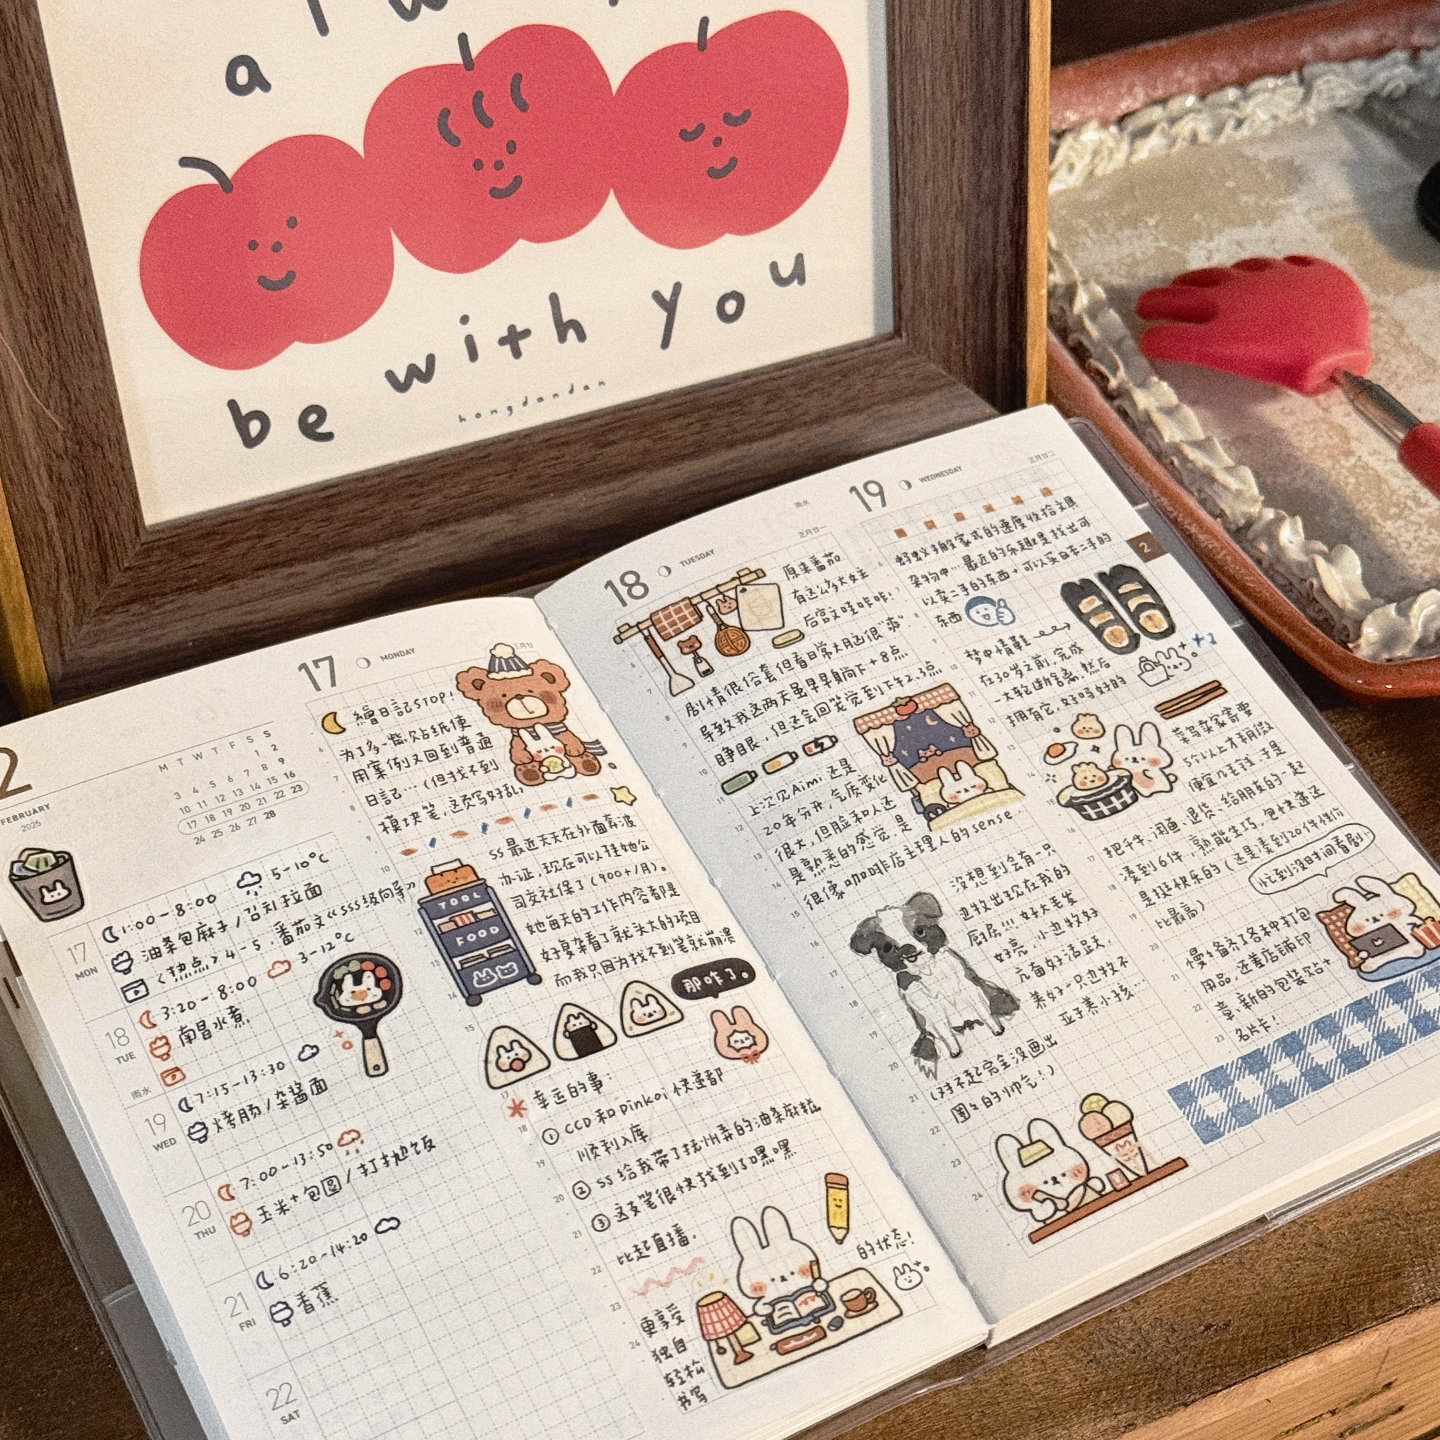 a
be with you
hongdandan
2
FEBRUARY
2025
M T W T F S S
1 2
3 4 5 6 7 8 9
10 11 12 13 14 15 16
17 18 19 20 21 22 23
24 25 26 27 28
17
MON
1:00-8:00 5-10°C
油条包麻子/石利拉面
《热点》4-5,番茄文《SSS级向导》
18
TUE
雨水
3:20-8:00 3-12°C
南昌水煮
19
WED
7:15-13:30
烤肠/杂酱面
20
THU
7:00-13:50
玉米+包圆/打抛饭
21
FRI
6:20-14:20
香蕉
22
SAT
17
MONDAY
繪日記STOP!
为了多一些贴纸使
用案例又回到普通
日记…(但找不到
模块笔,这页写好乱
SS最近天天在外面奔波
办证,现在可以挂她公
司交社保了(900+/月)。
她每天的工作内容都是
好复杂看了就头大的项目
而我只因为找不到笔就崩溃
TOOL
FOOD
那咋了。
幸运的事:
① CCD和pinkoi快递都
顺利入库
② SS给我带了抚州弄的油条麻糍
③ 这支笔很快找到了嘿嘿
比起直播,
更享受
独自
轻松
书写
的状态!
18
TUESDAY
雨水
正月廿一
原来番茄
有这么多大女主
后宫文哇咔咔!
剧情很俗套但看日常大脑很“爽”
导致我这两天虽早早躺下+8点
睁眼,但还会回笼觉到下午2.3点
上次见Aimi还是
20年分开,气质变化
很大,但脸和人还
是熟悉的感觉是
很像咖啡店主理人的sense.
没想到会有一只
边牧出现在我的
厨房!!!好大毛发
好亮,小边牧好
亢奋好活跃
养好一只边牧不
亚于养小孩…
(对不起完全没画出
团团的帅气!)
19
WEDNESDAY
正月廿二
2
蚂蚁搬家式的速度收拾文具
杂物中…最近的乐趣是找出可
以卖二手的东西+可以买日本二手的
东西
梦中情鞋
在30岁之前,完成
一大轮断舍离,然后
拥有它,好吗好的
菜鸟卖家寄要
5个以上才稍微
便宜几毛钱,于是
把千牛、闲鱼、退货、给朋友的一起
凑到6件,熟能生巧,包快递还
是挺快乐的(还是凑到20件性价
比最高)
忙到没时间看剧
慢慢备齐了各种打包
用品,还差店铺印
章、新的包装贴+
名片卡!